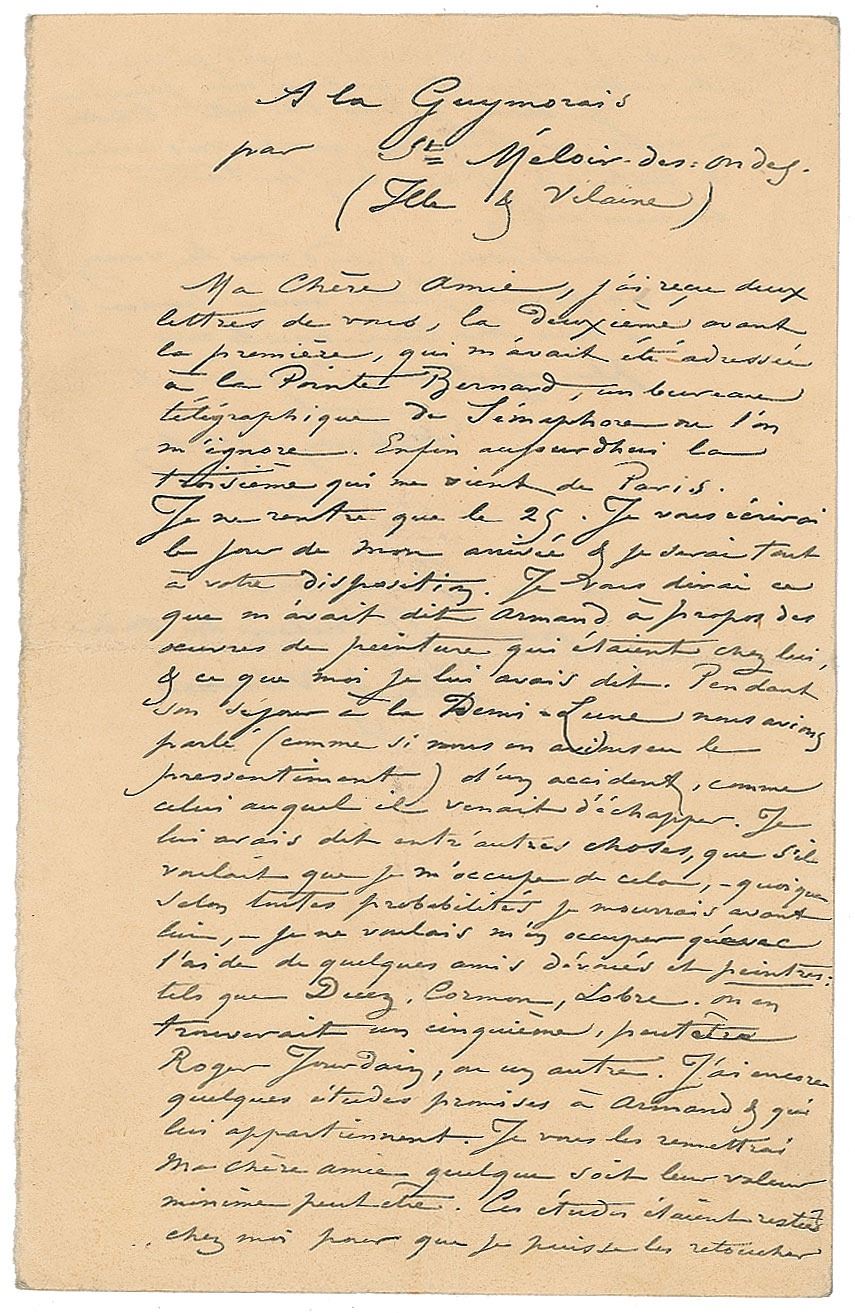 A la Guymorais
par St Méloir-des-ondes.
(Ille & Vilaine)
Ma Chère Amie, j'ai reçu deux
lettres de vous, la deuxième avant
la première, qui m'avait été adressée
à la Pointe Bernard, un bureau
télégraphique de Sémaphore ou l'on
m'ignore. Enfin aujourdhui la
troisième qui me vient de Paris.
Je ne rentre que le 25. Je vous écrirai
le jour de mon arrivée & je serai tout
à votre disposition. Je vous dirai ce
que m'avait dit Armand à propos des
œuvres de peinture qui étaient chez lui,
& ce que moi je lui avais dit. Pendant
son séjour à la Demi-Lune nous avions
parlé (comme si nous en avions eu le
pressentiment) d'un accident, comme
celui auquel il venait d'échapper. Je
lui avais dit entr'autres choses, que s'il
voulait que je m'occupe de cela, - quoique
selon toutes probabilités je mourrais avant
lui, - je ne voulais m'en occuper qu'avec
l'aide de quelques amis dévoués et peintres:
tels que Duez, Cormon, Lobre. on en
trouverait un cinquième, peut être
Roger Jourdain, ou un autre. J'ai encore
quelques études promises à Armand & qui
lui appartiennent. Je vous les remettrai
Ma chère amie quelque soit leur valeur
minime peut être. Ces études étaient restées
chez moi pour que je puisse les retoucher